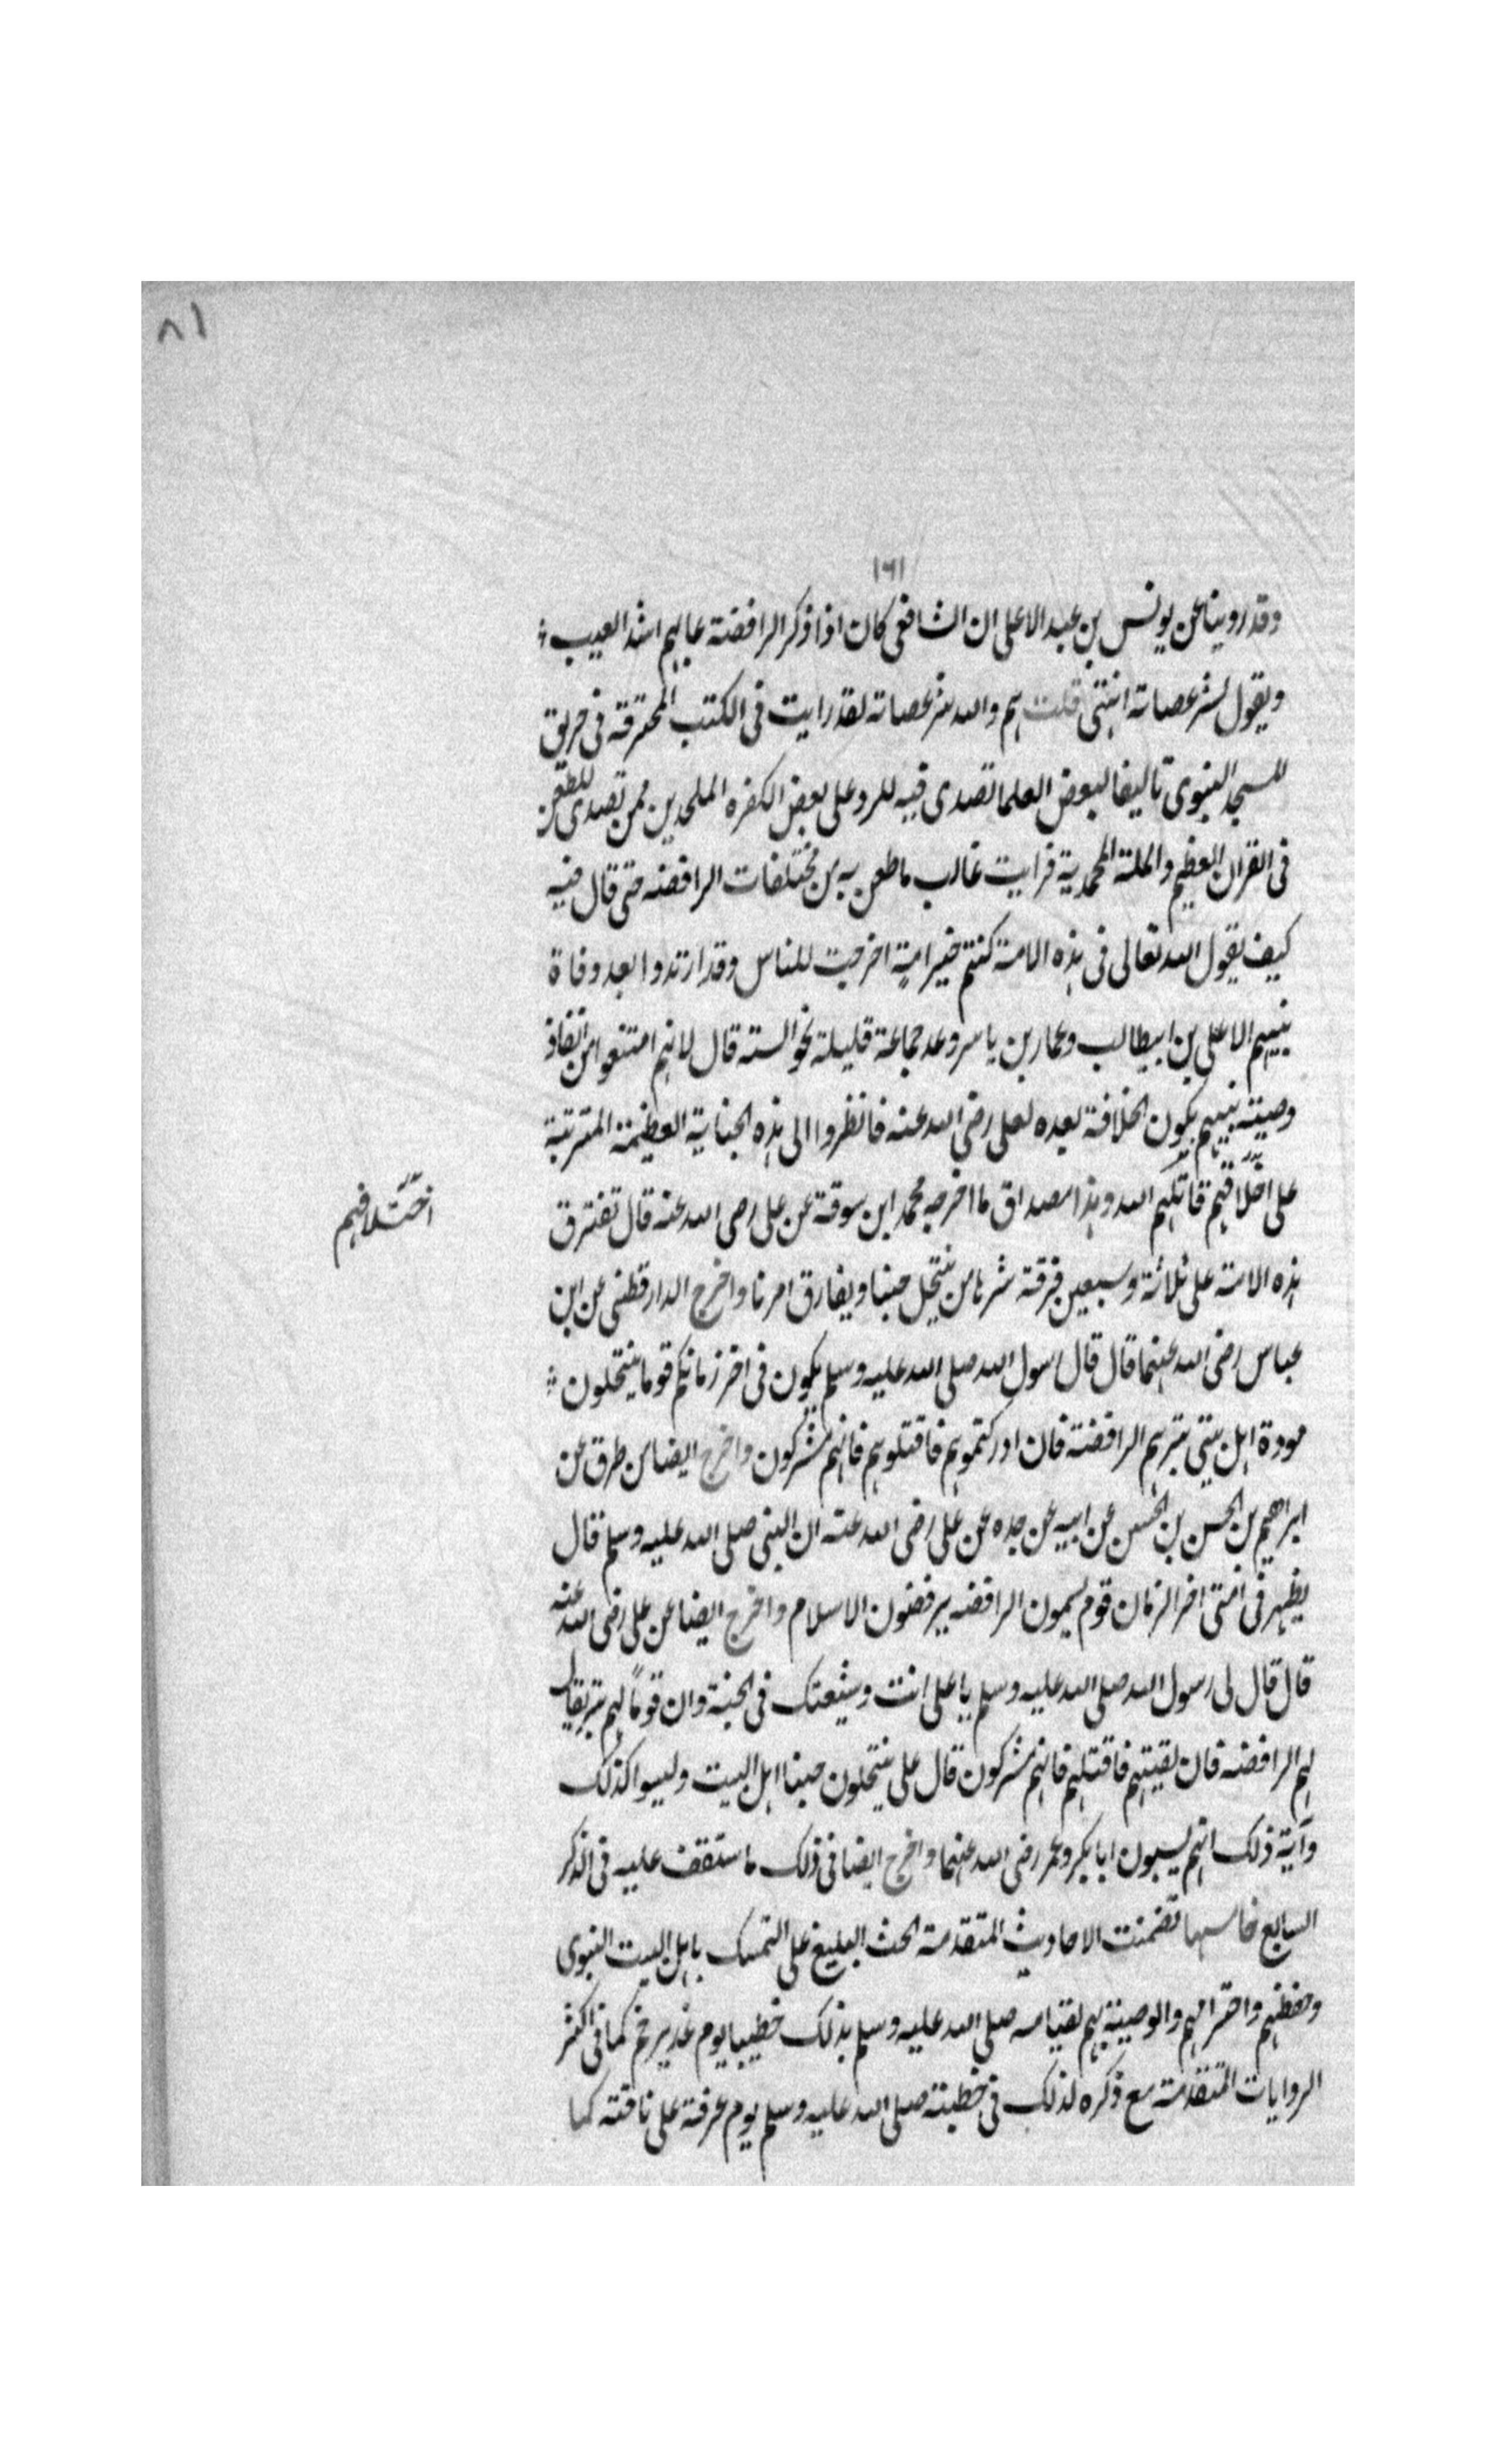 ٨١
١٦١
وقد روينا عن يونس بن عبد الاعلى ان الشافعى كان اذا ذكر الرافضة عابهم اشد العيب
ويقول لشر عصاته انتهى قلت هم والله شر عصاته لقد رايت فى الكتب المحترقة فى حريق
المسجد النبوى تاليفا لبعض العلما تصدى فيه للرد على بعض الكفره الملحدين ممن تصدى للطعن
فى القران العظيم والملة المحمدية فرايت غالب ما طعن به من مختلفات الرافضه حتى قال فيه
كيف يقول الله تعالى فى هذه الامة كنتم خير امة اخرجت للناس وقد ارتدوا بعد وفاة
نبيهم الا على بن ابيطالب وعمار بن ياسر وعد جماعة قليلة نحو السته قال لانهم امتنعوا من انفاذ
وصية نبيهم بكون الخلافة بعده لعلى رضى الله عنه فانظروا الى هذه الجناية العظيمة المترتبة
على اختلاقهم قاتلهم الله وهذا مصداق ما اخرجه محمد ابن سوقة عن على رضى الله عنه قال تفترق
اختلافهم
هذه الامة على ثلاثة وسبعين فرقة شرنا من ينتحل حبنا ويفارق امرنا واخرج الدارقطنى عن ابن
عباس رضى الله عنهما قال قال رسول الله صلى الله عليه وسلم يكون فى اخر زمانكم قوما ينتحلون
مودة اهل بيتى نبزهم الرافضة فان ادركتموهم فاقتلوهم فانهم مشركون واخرج ايضا من طرق عن
ابراهيم بن الحسن بن الحسن عن ابيه عن جده عن على رضى الله عنه ان النبى صلى الله عليه وسلم قال
يظهر فى امتى اخر الزمان قوم يسمون الرافضه يرفضون الاسلام واخرج ايضا عن على رضى الله عنه
قال قال لى رسول الله صلى الله عليه وسلم يا على انت وشيعتك فى الجنة وان قوماً لهم نبز يقال
لهم الرافضه فان لقيتهم فاقتلهم فانهم مشركون قال على ينتحلون حبنا اهل البيت وليسوا كذلك
وآية ذلك انهم يسبون ابا بكر وعمر رضى الله عنهما واخرج ايضا فى ذلك ما ستقف عليه فى الذكر
السابع خامسها تضمنت الاحاديث المتقدمة الحث البليغ على التمسك باهل البيت النبوى
وحفظهم واحترامهم والوصية بهم لقيامه صلى الله عليه وسلم بذلك خطيبا يوم غدير خم كما فى اكثر
الروايات المتقدمة مع ذكره لذلك فى خطبته صلى الله عليه وسلم يوم عرفة على ناقته كما